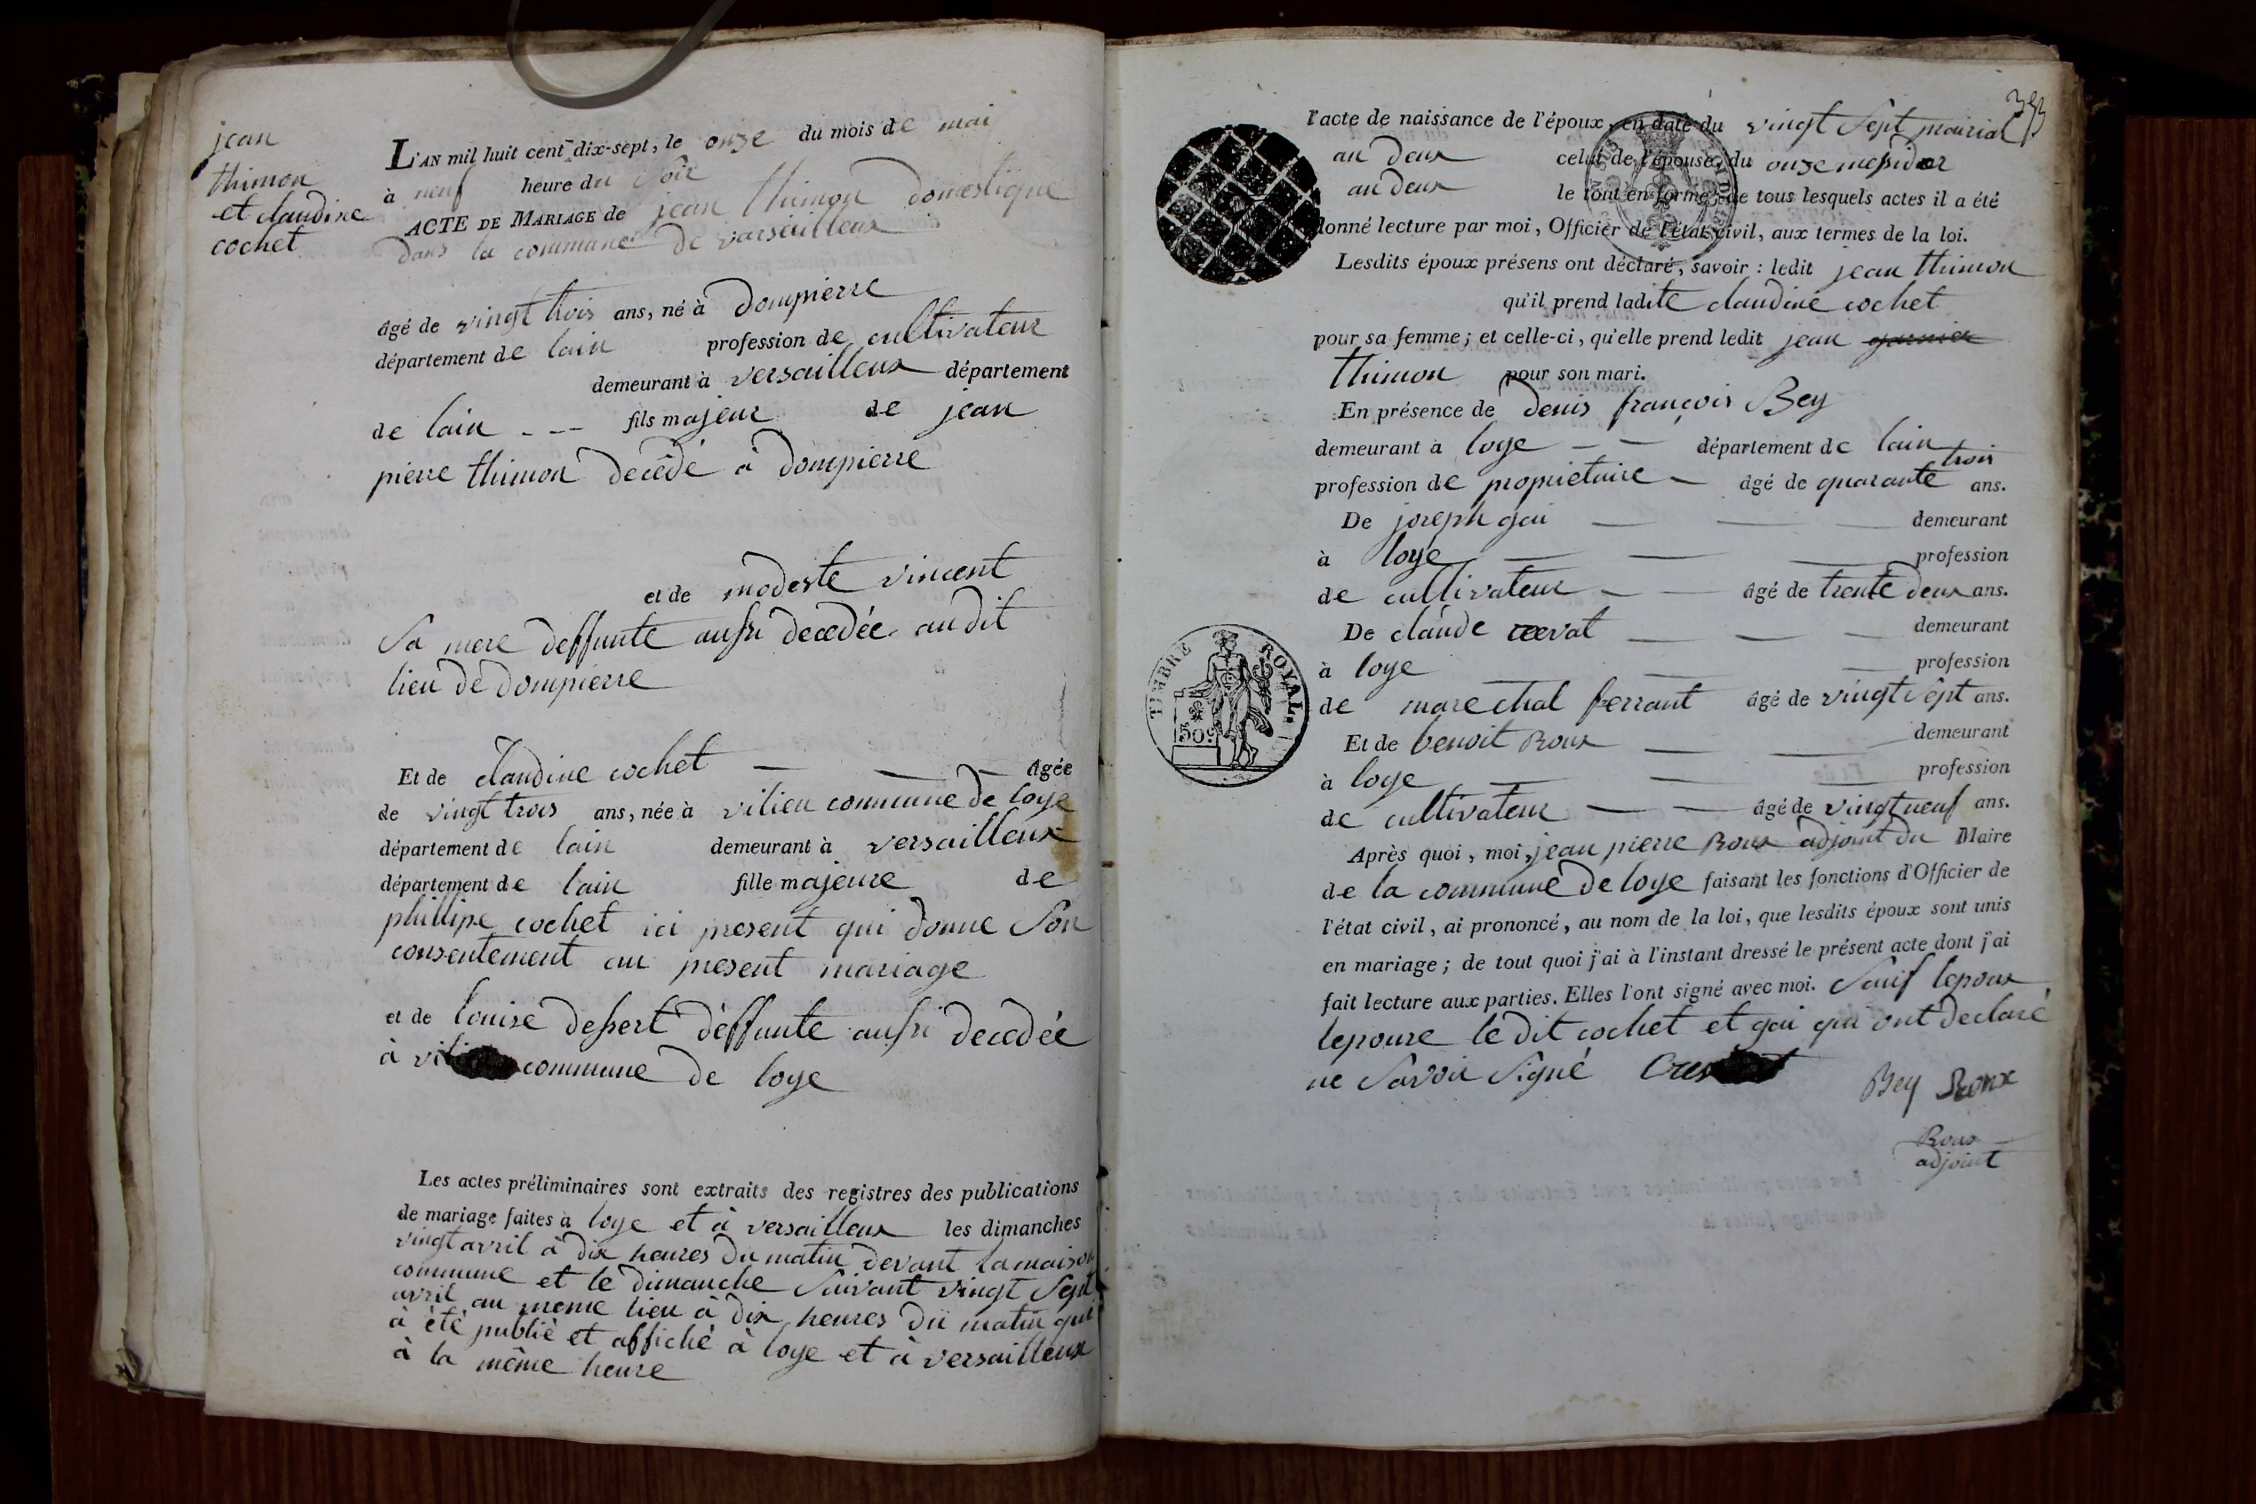 jean
thimon
et claudine
cochet
L'AN mil huit cent dix-sept, le onze du mois de mai
à neuf heure du soir
ACTE DE MARIAGE de jean thimon domestique
dans la commune de varsailleux
âgé de vingt trois ans, né à dompierre
département de lain profession de cultivateur
demeurant à versailleux département
de lain --- fils majeur de jean
pierre thimon decédé à dompierre
et de modeste vincent
sa mere deffunte aussi decedée audit
lieu de dompierre
Et de claudine cochet âgée
de vingt trois ans, née à vilieu commune de loye
département de lain demeurant à versailleux
département de lain fille majeure de
phillipe cochet ici present qui donne son
consentement au present mariage
et de louise dessert deffunte aussi decedée
à commune de loye
Les actes préliminaires sont extraits des registres des publications
de mariage faites à loye et à versailleux les dimanches
vingt avril à dix heures du matin devant la maison
commune et le dimanche suivant vingt sept
avril au meme lieu à dix heures du matin qui
à été publié et affiché à loye et à versailleux
à la même heure
353
l'acte de naissance de l'époux, en date du vingt sept prairial
an deux celui de l'épouse, du onze messidor
an deux le tout en forme; de tous lesquels actes il a été
donné lecture par moi, Officier de l'état civil, aux termes de la loi.
Lesdits époux présens ont déclaré, savoir : ledit jean thimon
qu'il prend ladite claudine cochet
pour sa femme; et celle-ci, qu'elle prend ledit jean garnier
thimon pour son mari.
En présence de denis françois Bey
demeurant à loye département de lain
profession de propriétaire âgé de quarante trois ans.
De joseph gai demeurant
à loye profession
de cultivateur âgé de trente deux ans.
De claude demeurant
à loye profession
de marechal ferrant âgé de vingt sept ans.
Et de benoit Roux demeurant
à loye profession
de cultivateur âgé de vingt neuf ans.
Après quoi, moi, jean pierre Roux adjoint du Maire
de la commune de loye faisant les fonctions d'Officier de
l'état civil, ai prononcé, au nom de la loi, que lesdits époux sont unis
en mariage; de tout quoi j'ai à l'instant dressé le présent acte dont j'ai
fait lecture aux parties. Elles l'ont signé avec moi. Sauf lepoux
lepouse le dit cochet et gai qui ont declaré
ne savoir signé
Bey Roux
Roux
adjoint
TIMBRE ROYAL.
50c